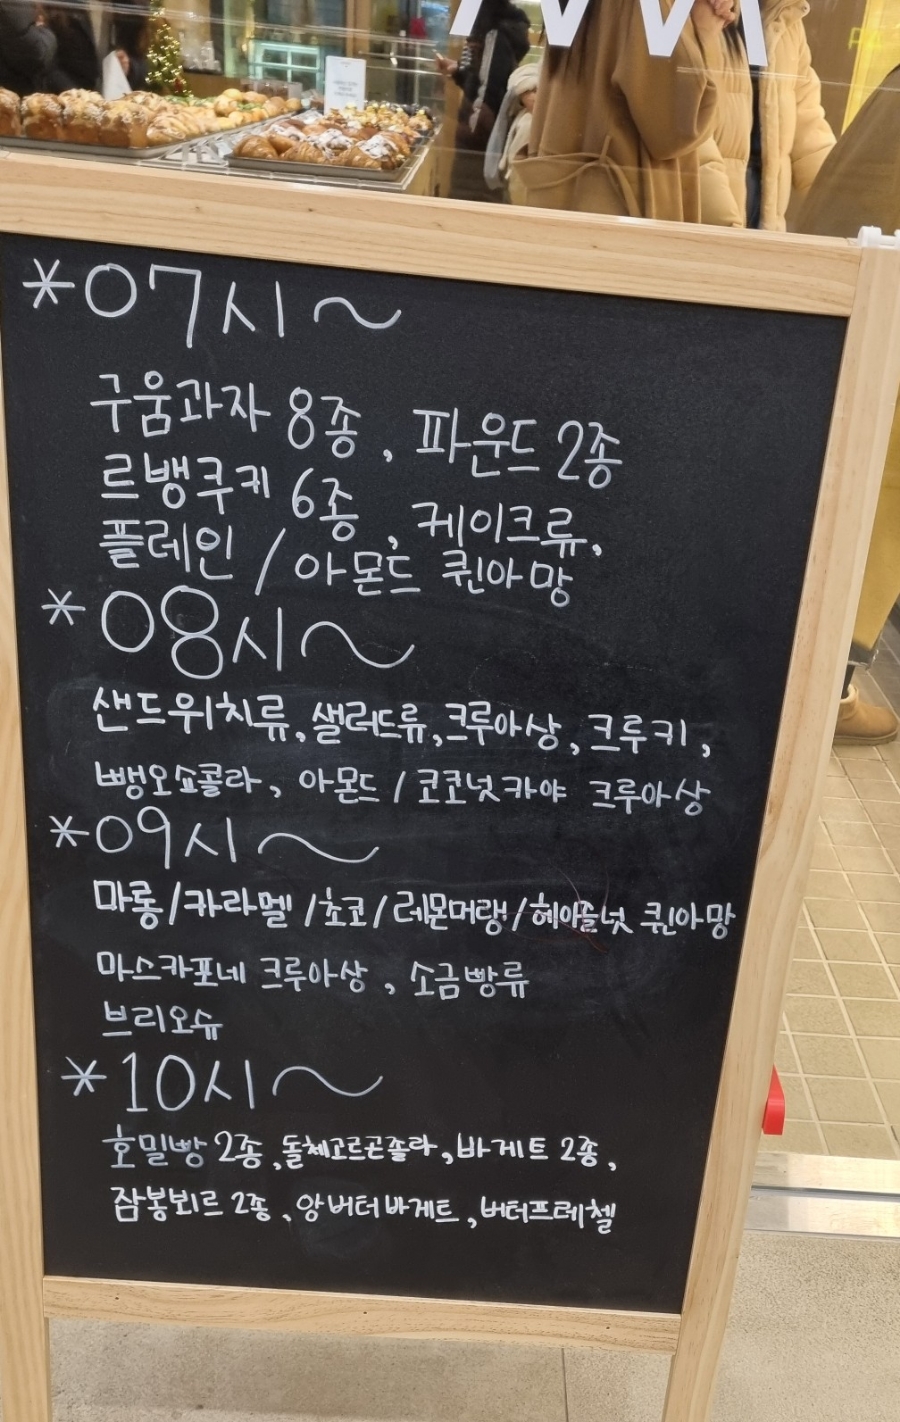 *07시~
구움과자 8종, 파운드 2종
르뱅쿠키 6종, 케이크류,
플레인 / 아몬드 퀸아망
*08시~
샌드위치류, 샐러드류, 크루아상, 크루키,
뺑오쇼콜라, 아몬드 / 코코넛카야 크루아상
*09시~
마롱/카라멜 /초코/레몬머랭/헤이즐넛 퀸아망
마스카포네 크루아상, 소금빵류
브리오슈
*10시~
호밀빵 2종, 돌체고르곤졸라, 바게트 2종,
잠봉뵈르 2종, 앙버터바게트, 버터프레첼